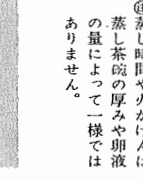 蒸し時間や火かげんは
蒸し茶碗の厚みや卵液
の量によって一様では
ありません。